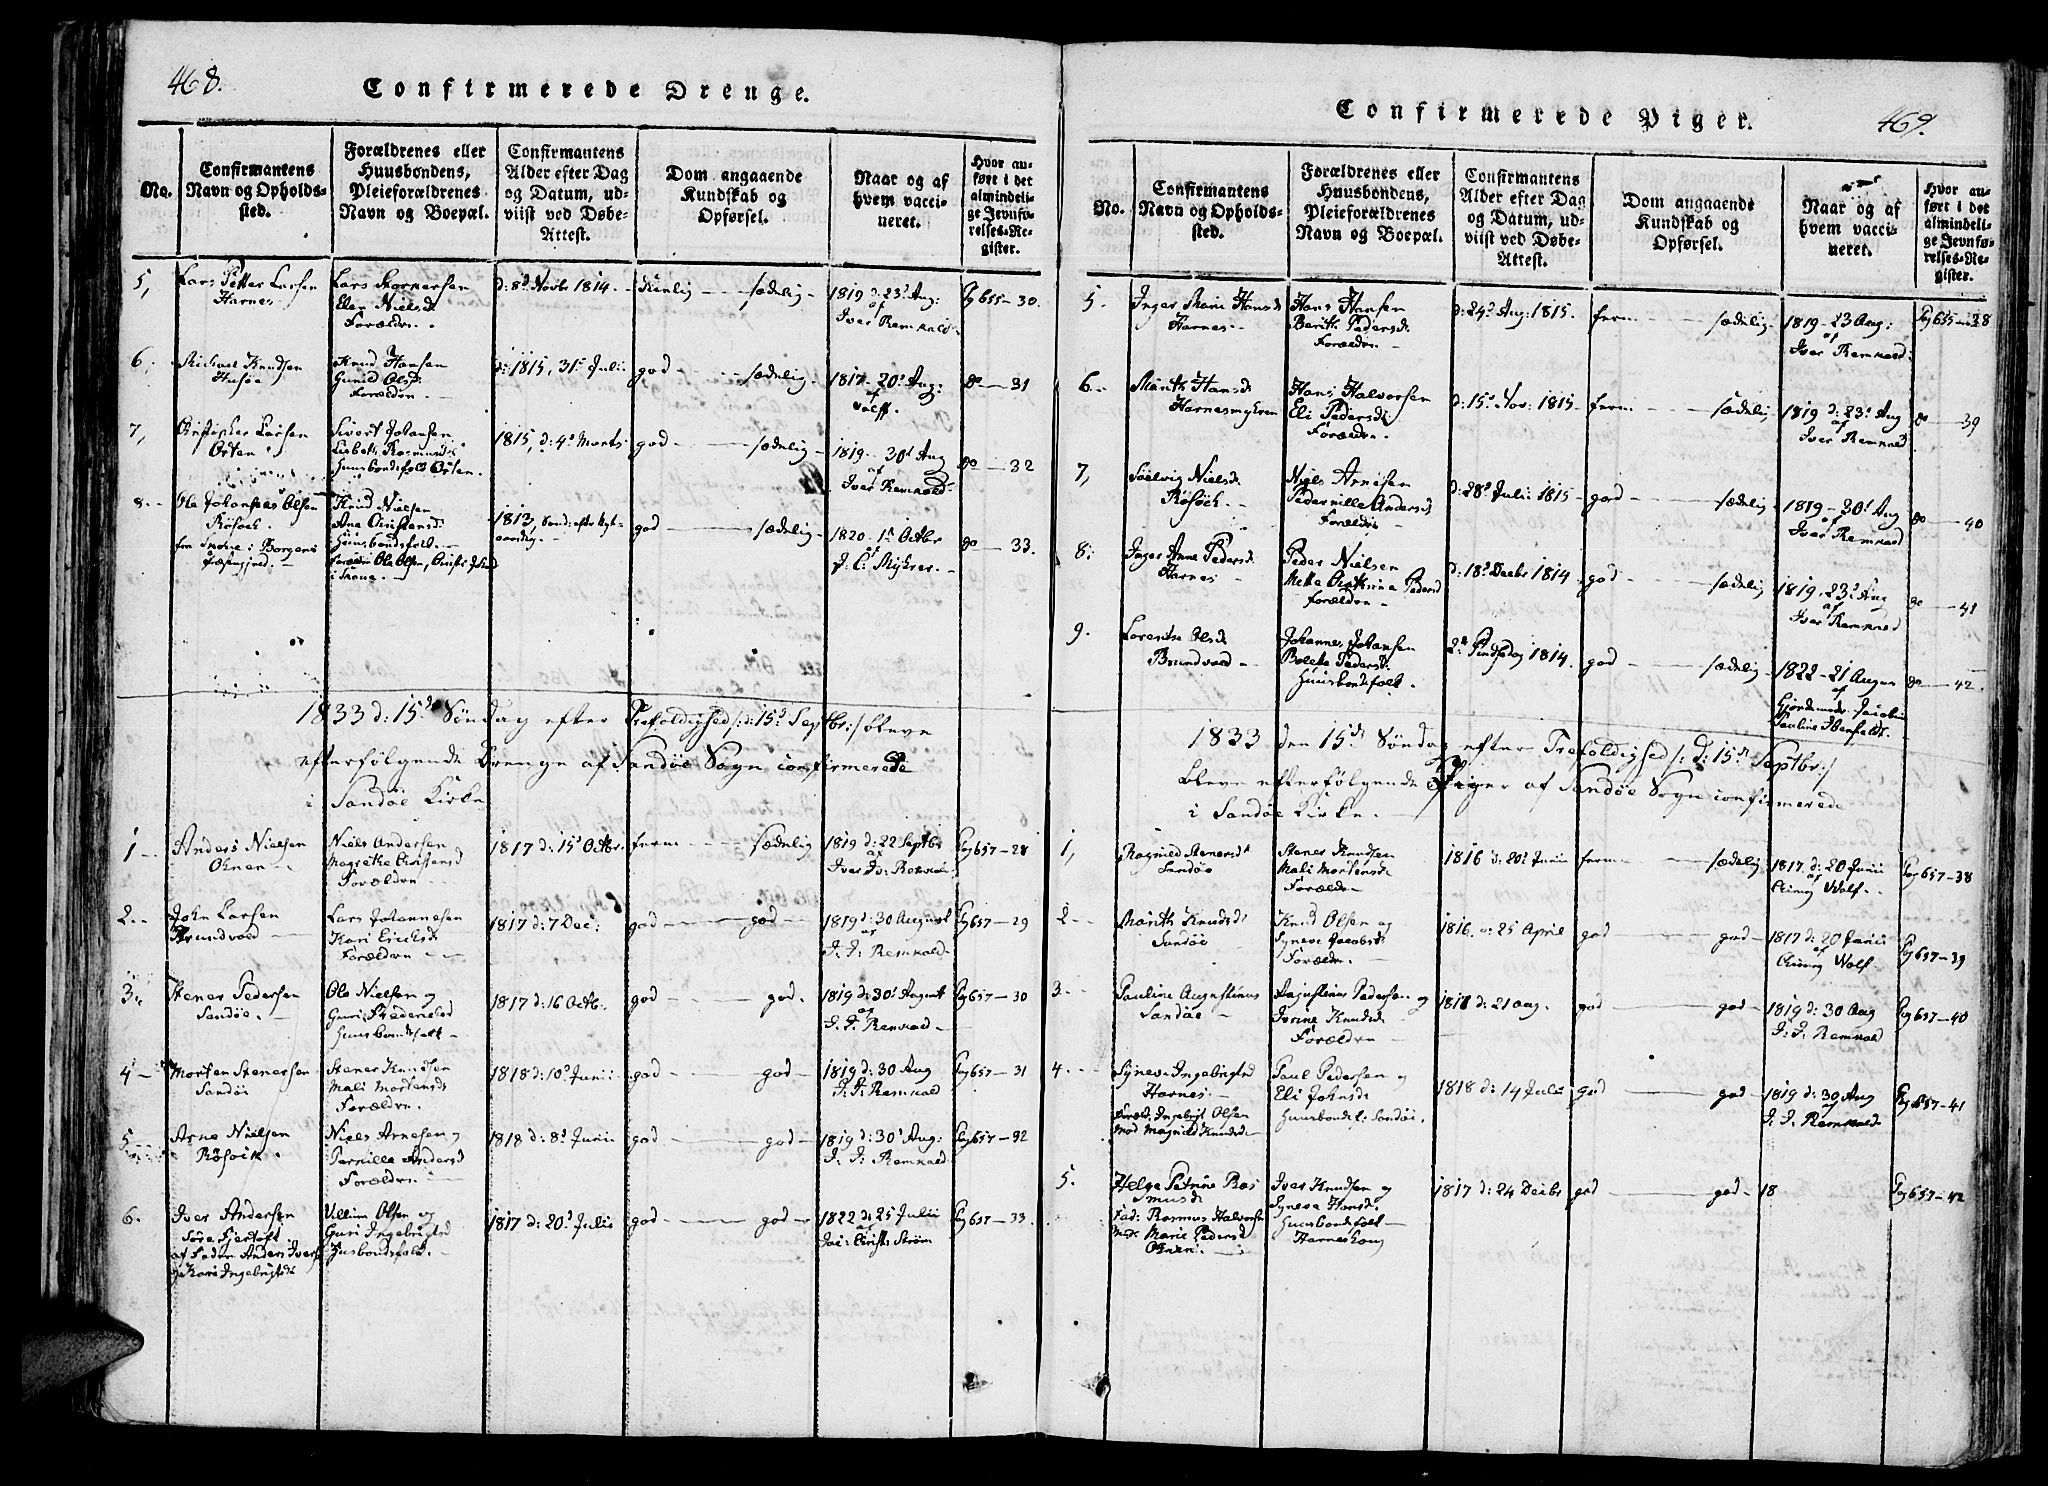 468.
Confirmerede Drenge.
No.
Confirmantens
Navn og Opholds-
sted.
Forældrenes eller
Huusbondens,
Pleieforældrenes
Navn og Boepæl.
Confirmantens
Alder efter Dag
og Datum, ud-
viist ved Døbe-
Attest.
Dom angaaende
Kundskab og
Opførsel.
Naar og af
hvem vacci-
neret.
Hvor an-
ført i det
almindeli-
ge Jevnfø-
relses-Re-
gister.
5,
Lars Petter Larsen
Harnes
Lars
Elen Nielsd
Forældre.
d: 8d Novbr 1814.
sædelig
1819 d: 23d Aug:
af
Iver Remkald
Pg 655-30.
6,
Knudsen
Husøe
Knud Hansen
Gunild Olsd
Forældre
d: 1815, 31. Juli
god
sædelig
1817 20d Aug:
af
Wolff.
do 31
7,
Larsen
Orten
Sivert Johansen
Lisbeth Rasmusd
Huusbondsfolk Orten.
1815, d: 4d Marts
god
sædelig
1819 30d Aug
af
Iver Remkald
do 32
8.
Ole Johannes Olsen
Røsoek.
fra i Borgens
Præstegjeld.
Knud Nielsen
Ane Christensd
Huusbondsfolk.
Forældre Ole Olsen,
i
1813, Sønd: efter Nyt-
aarsdag.
god
sædelig
1820 1n Octbr
af
J. C. Myhrer.
do 33.
1833 d: 15d Søndag efter Trefoldighed /: d: 15d Septbr:/ bleve
efterfølgende Drenge af Sandøe Sogn confirmerede
i Sandøe Kirke
1
Anders Nielsen
Oknen
Niels Andersen
Magrethe Christensd
Forældre
1817 d: 15d Octbr.
ferm
sædelig
1819 d: 22 Septbr
af
Iver Iv: Remkal
Pg 657-28
2.
John Larsen
Brundvold
Lars Johannesen
Kari Ericksd
Forældre
1817 d: 7 Dec:
god
god
1819 d: 30 August
af
I. I. Remkald
Pg 657-29
3.
Stener Pedersen
Sandøe.
Ole Nielsen og
Guri
Huusbondsfolk
1817 d: 16 Octbr.
god
god.
1819 d: 30d August
af
I. I. Remkald
Pg 657-30
4
Morten Stenersen
Sandøe
Stener Knudsen
Mali Mortensd
Forældre.
1818 d: 10d Junii
god
god
1819 d: 30 Aug
I. I. Remkald
Pg 657-31
5
Arne Nielsen
Røsoik
Niels Arnesen og
Pernille Andersd
Forældre
1818 d: 8d Junii
god
god
1819 d: 30d Aug:
I. I. Remkald
Pg 657-32
6.
Iver Andersen
Søre Fjertoft
af Fader Anders Ivers
og Kari Ingebrigtsd:
Villum Olsen og
Guri Ingebrigtsd
Huusbondsfolk.
1817 d: 20d Julii
god
god
1822 d: 25 Julii
af
Jac: Christ: Strøm
Pg 657-33.
469.
Confirmerede Piger.
No.
Confirmantens
Navn og Opholds-
sted.
Forældrenes eller
Huusbondens,
Pleieforældrenes
Navn og Boepæl.
Confirmantens
Alder efter Dag
og Datum, ud-
viist ved Døbe-
Attest.
Dom angaaende
Kundskab og
Opførsel.
Naar og af
hvem vacci-
neret.
Hvor an-
ført i det
almindeli-
ge Jevnfø-
relses-Re-
gister.
5.
Inger Marie Hansd
Harnes
Hans Hansen
Berith Pedersd:
Forældre
d: 24d Aug: 1815.
ferm
sædelig
1819 23 Aug:
af
Iver Remkald
Pg 655-38
6.
Marith Hansd
Harnesmyhren
Hans Halvorsen
Eli Pedersd
Forældre.
d: 15d Nov: 1815
ferm
sædelig
1819 d: 23d Aug
af
Iver Remkald
do 39
7,
Søelvig Nielsd
Røsoek
Niels Arnesen
Pedernille Andersd
Forældre
d: 28d Juli 1815
god
sædelig
1819 30d Aug
af
Iver Remkald
do 40
8.
Inger Anne Pedersd.
Harnes
Peder Nielsen
Mette Pedersd
Forældre
d: 18d Decbr 1814
god
sædelig
1819. 23d Aug
af
Iver Remkald
do 41
9.
Lorentse Olsd
Brundvold
Johannes Johansen
Bolette Pedersd:
Huusbondsfolk.
2n Pindsdag 1814.
god
sædelig
1822 21 August
af
Gjordemoder Jacobin
Pauline Ibenfeldt.
do 42.
1833 den 15de Søndag efter Trefoldighed /: d: 15de Septbr:/
bleve efterfølgende Piger af Sandøe Sogn confirmerede
i Sandøe Kirke.
1,
Ragnild Stenersd
Sandøe
Stener Knudsen
Mali Mortensd
Forældre
1816 d: 20d Junii
ferm
sædelig
1817 d: 20 Junii
af
Wolf
Pg 657-38
2
Marith Knudsd:
Sandøe
Knud Olsen og
Synneve Jacobsd
Forældre.
1816. d: 25 April
god
god
1817 d: 20 Junii
af
Wolf
Pg 657-39
3.
Pauline Augustinus
Sandøe
Augustinus Pedersen og
Knudsd
Forældre
1818 d: 21 Aug.
god
god
1819 d: 30 Aug
I. I. Remkald
Pg 657-40
4.
Synneve Ingebrigtsd
Harnes.
Foræld: Ingebrigt Olsen
Mod Magnild Knudsd
Paul Pedersen og
Eli Johnsd
Huusbondsf: Sandøe.
1818 d: 14 Julii
god
god
1819 d: 30 Aug
af
I. I. Remkald
Pg 657-41
5.
Helge Petrine Ras
musd
Fad: Rasmus Halvorsen
Mod: Marie Pedersd
Oknen
Iver Knudsen og
Synneva Hansd:
Huusbondsfolk
Harneshoug
1817 d: 24 Decbr
god
god
18
Pg 657-42